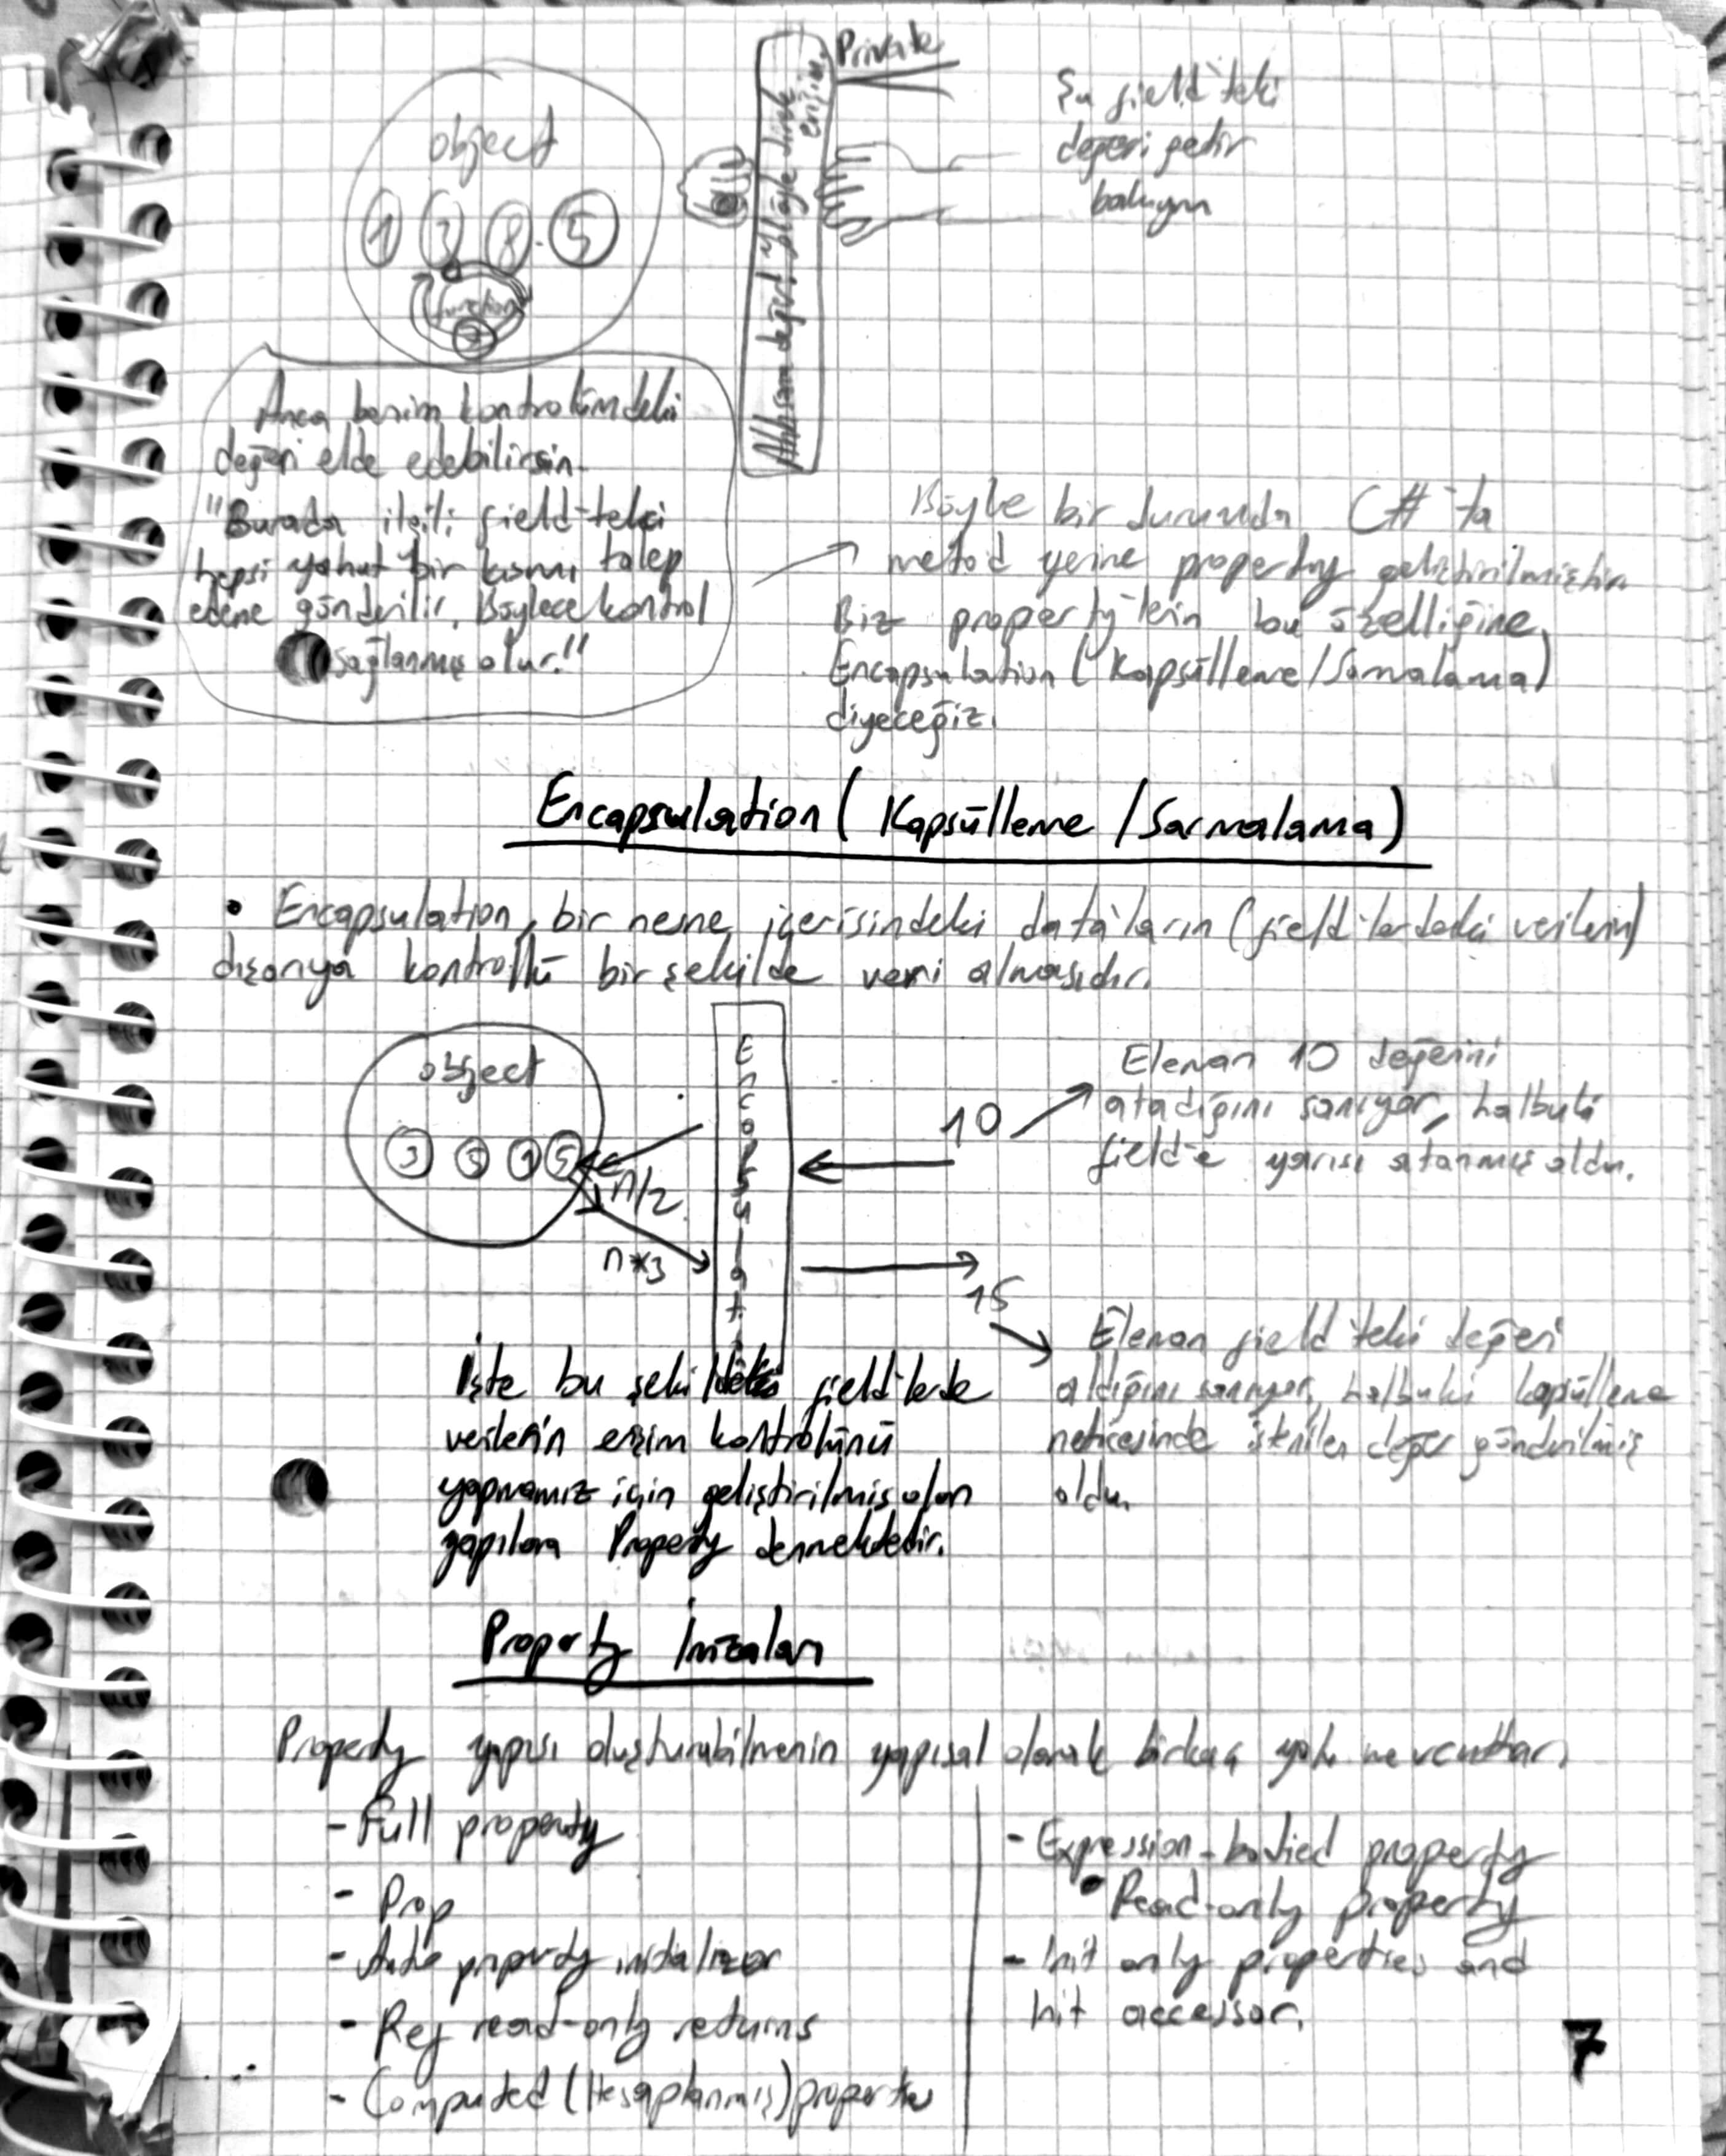 Private
object
Şu field'teki
değeri getir
bakıyım
1 3 8 5
function
Ahhsam değeri! Yläğle direk erişim
Anca benim kontrolümdeki
değeri elde edebilirsin.
"Burada ilgili field'teki
hepsi yahut bir kısmı talep
edene gönderilir. Böylece kontrol
sağlanmış olur."
Böyle bir durumda C#'ta
metod yerine property geliştirilmiştir.
Biz property'lerin bu özelliğine,
Encapsulation (Kapsülleme/Sarmalama)
diyeceğiz.
Encapsulation (Kapsülleme /Sarmalama)
• Encapsulation, bir nesne içerisindeki data'ların (field'lardaki verilerin)
dışarıya kontrollü bir şekilde veri almasıdır.
object
3 5 1 5
n/2
n*3
Encapsulat
10
15
Eleman 10 değerini
atadığını sanıyor, halbuki
field'e yarısı atanmış oldu.
Eleman field'teki değeri
aldığını sanıyor, halbuki kapsülleme
neticesinde istenilen değer gönderilmiş
oldu.
İşte bu şekildeki field'lerde
verilerin erişim kontrolünü
yapmamız için geliştirilmiş olan
yapılara Property denmektedir.
Property İmzaları
Property yapısı oluşturabilmenin yapısal olarak birkaç yolu mevcuttur.
- Full property
- Prop
- Auto property initalizer
- Ref read-only returns
- Computed (Hesaplanmış) properties
- Expression-bodied property
• Read-only property
- Init only properties and
Init accessor.
7